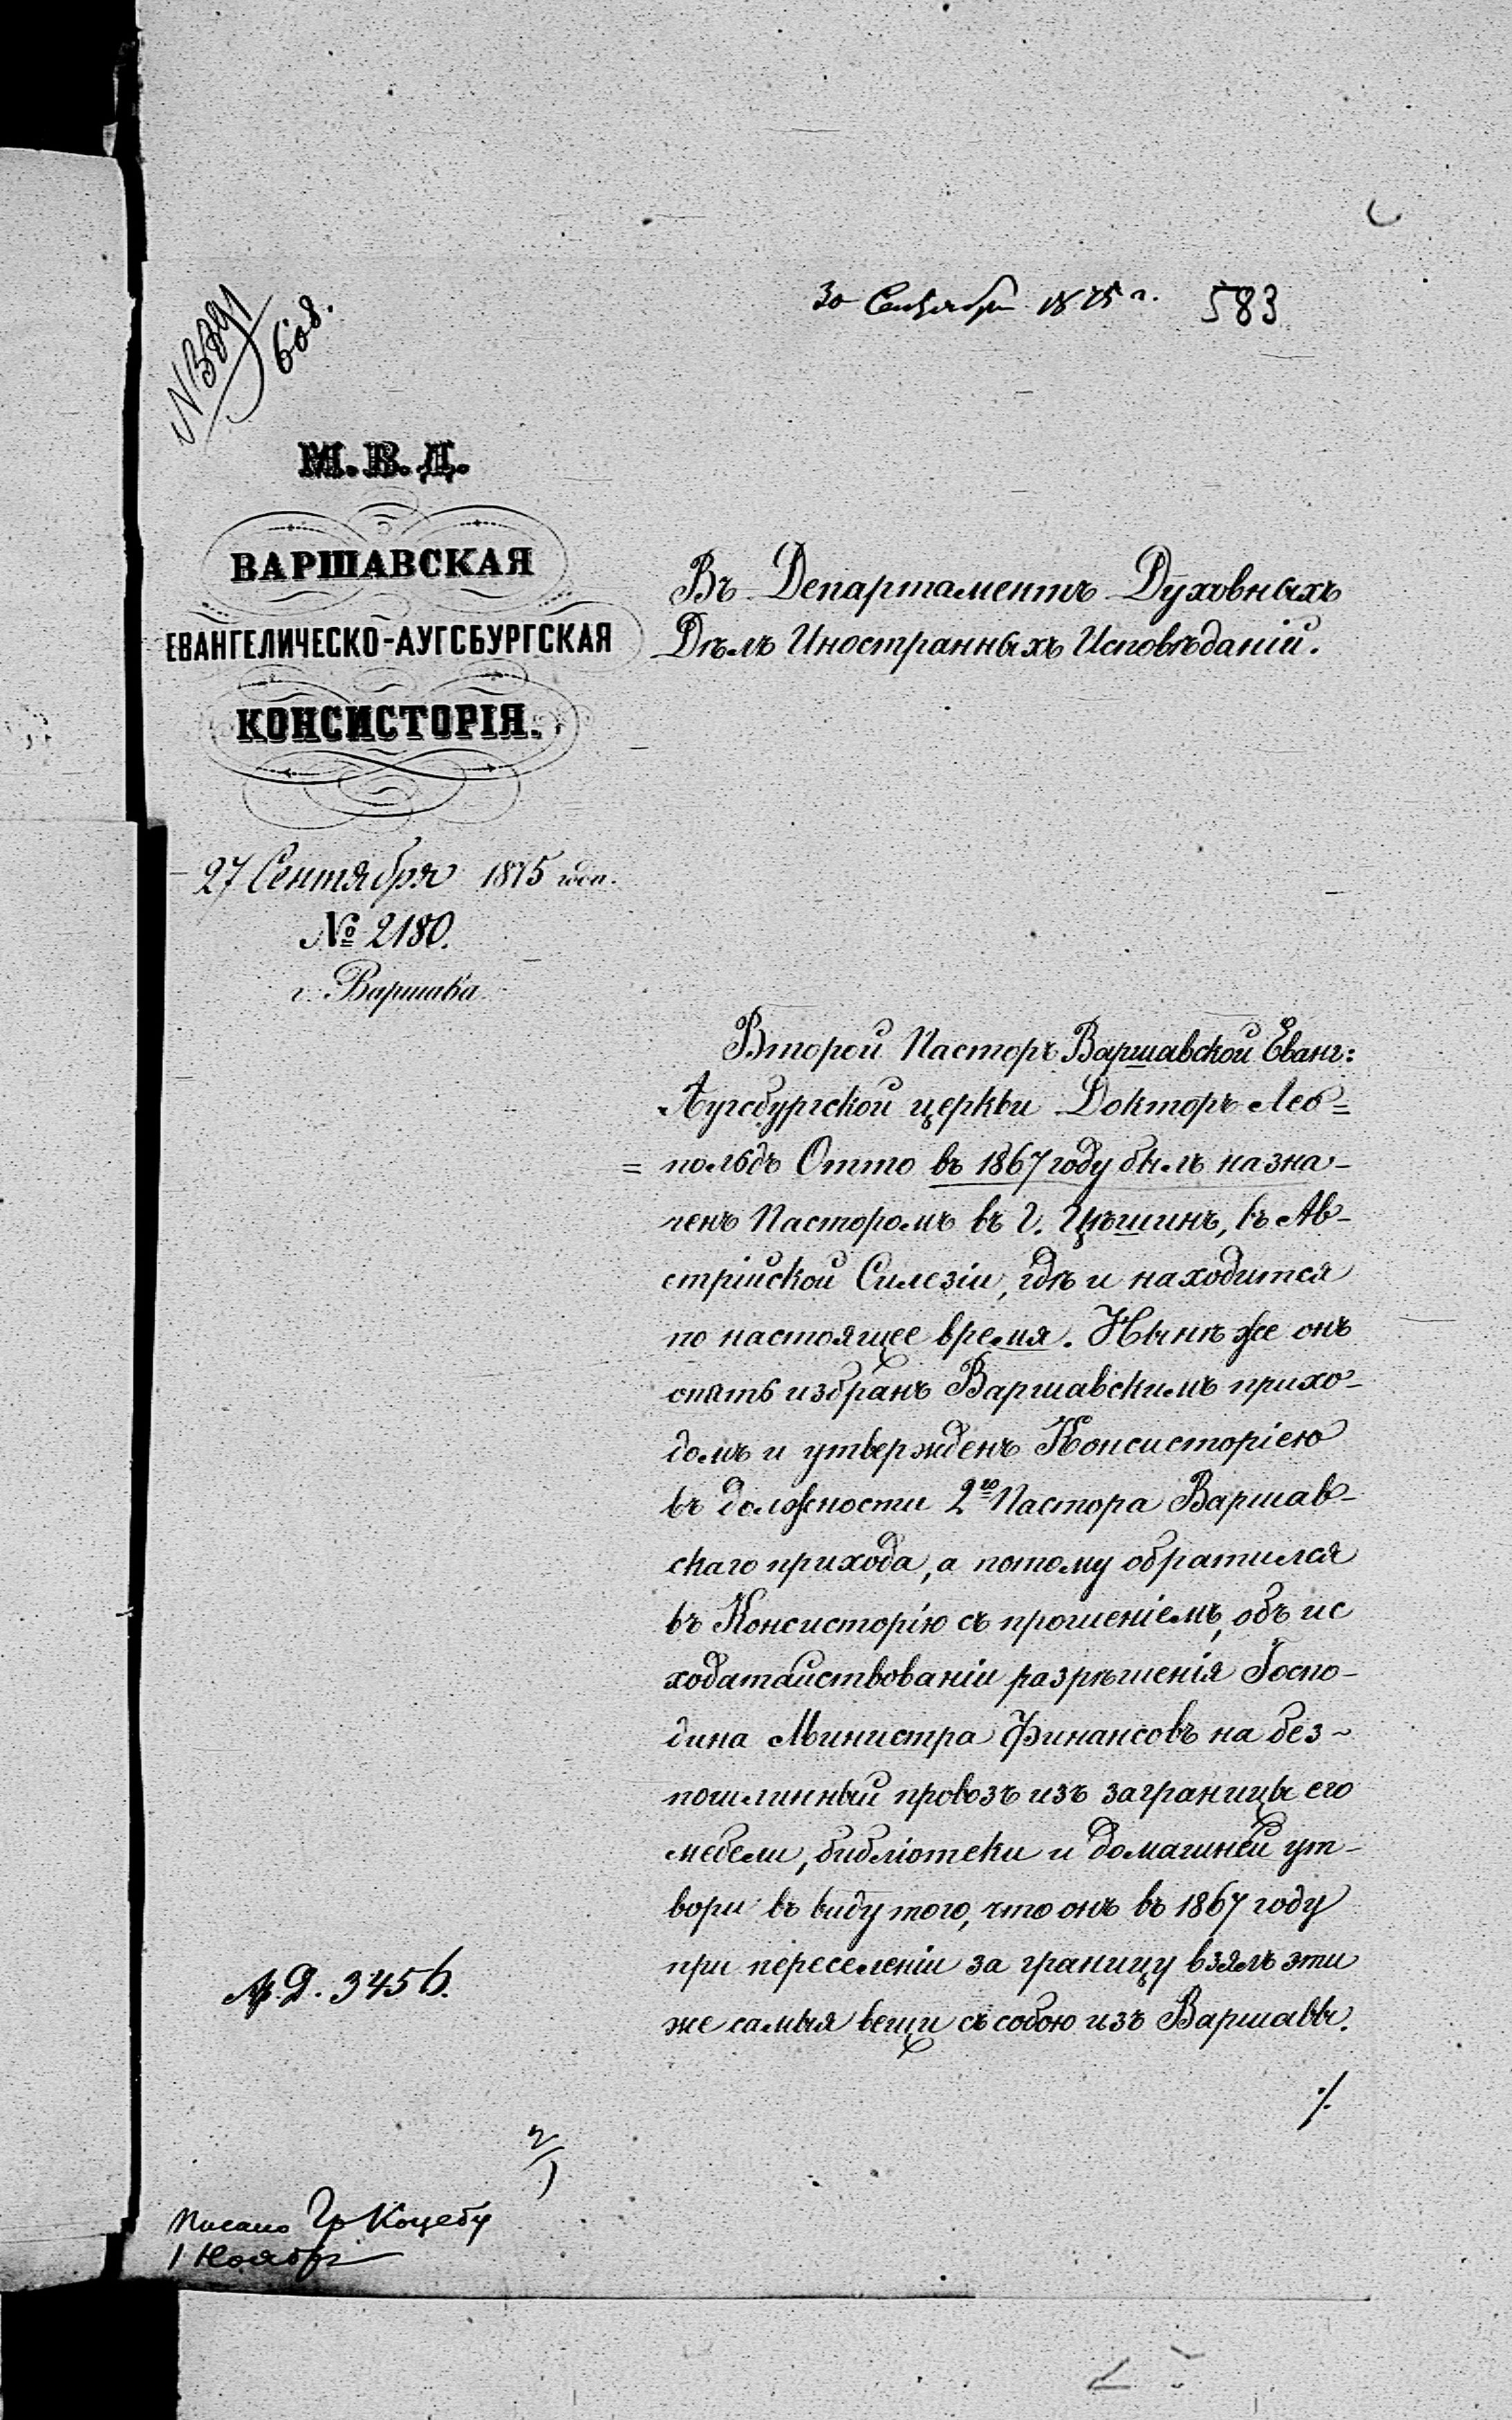 30 Сентября 1875 г. 583
№ 3891
608.
М. В. Д.
ВАРШАВСКАЯ
ЕВАНГЕЛИЧЕСКО-АУГСБУРГСКАЯ
КОНСИСТОРІЯ.
27 Сентября 1875 года.
№ 2180.
г. Варшава.
Въ Департаментъ Духовныхъ
Дѣлъ Иностранныхъ Исповѣданій.
Второй Пасторъ Варшавской Еванг:
Аугсбургской церкви Докторъ Лео=
=польдъ Отто въ 1867 году былъ назна-
ченъ Пасторомъ въ г. Цѣшинъ, въ Ав-
стрійской Силезіи, гдѣ и находится
по настоящее время. Нынѣ же онъ
опять избранъ Варшавскимъ прихо-
домъ и утвержденъ Консисторіею
въ должности 2го Пастора Варшав-
скаго прихода, а потому обратился
въ Консисторію съ прошеніемъ, объ ис
ходатайствованіи разрѣшенія Госпо-
дина Министра Финансовъ на без-
пошлинный провозъ изъ заграницы его
мебели, библіотеки и домашней ут-
вори въ виду того, что онъ въ 1867 году
при переселеніи за границу взялъ эти
же самыя вещи съ собою изъ Варшавы.
./.
3456.
Писано Гр Коцебу
1 Ноября